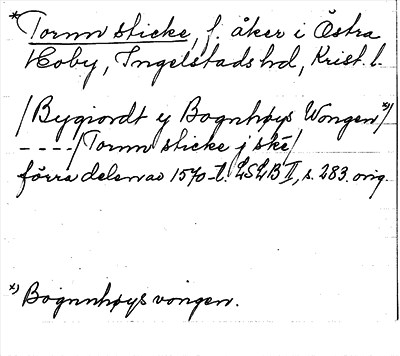 *Tornn sticke, f. åker i Östra
Hoby, Ingelstads hd, Krist. l.
/Bygiordt y Bognhøys Wongen*)/
----/Tornn sticke j ske/
förra delen av 1570-t. LSLB II, s. 283. orig.
*) Bognnhøys vongen.